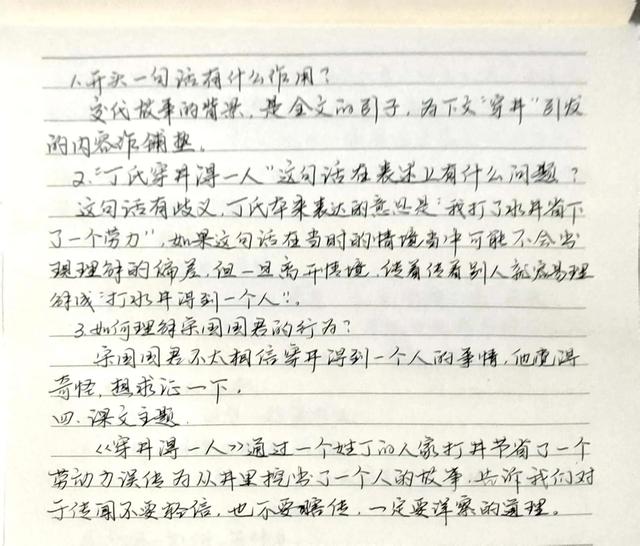 1.开头一句话有什么作用？
交代故事的背景，是全文的引子，为下文“穿井”引发
的内容作铺垫。
2.“丁氏穿井得一人”这句话在表述上有什么问题？
这句话有歧义，丁氏本来表达的意思是“我打了水井省下
了一个劳力”，如果这句话在当时的情境当中可能不会出
现理解的偏差，但一旦离开情境，传着传着别人就容易理
解成“打水井得到一个人”。
3.如何理解宋国国君的行为？
宋国国君不太相信穿井得到一个人的事情，他觉得
奇怪，想求证一下。
四.课文主题.
《穿井得一人》通过一个姓丁的人家打井节省了一个
劳动力误传为从井里挖出了一个人的故事，告诉我们对
于传闻不要轻信，也不要瞎传，一定要详察的道理。